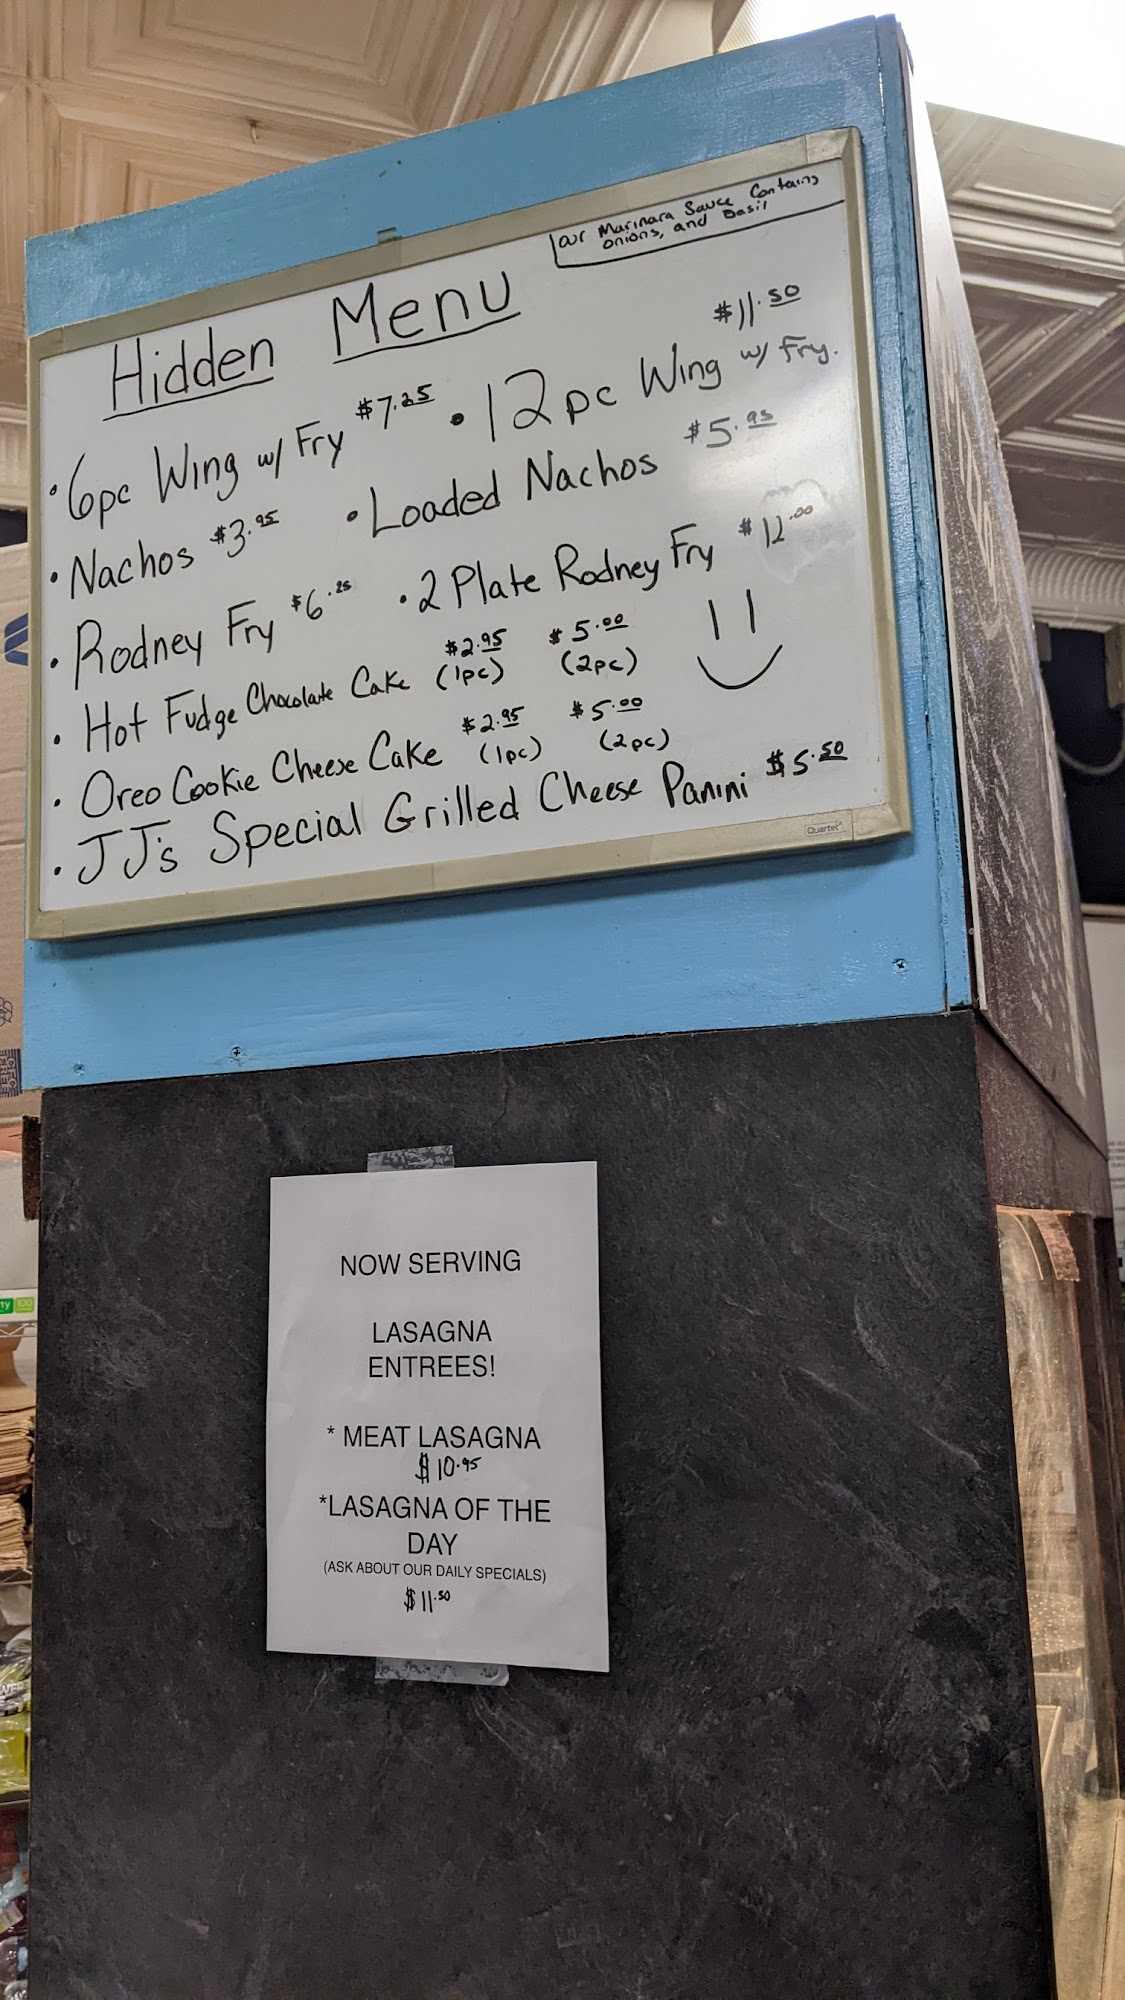 our Marinara Sauce Contains
onions, and Basil
Hidden Menu
• 6pc Wing w/ Fry $7.25 • 12pc Wing w/ Fry. $11.50
• Nachos $3.95 • Loaded Nachos $5.95
• Rodney Fry $6.25 • 2 Plate Rodney Fry $12.00
• Hot Fudge Chocolate Cake $2.95 (1pc) $5.00 (2pc)
• Oreo Cookie Cheese Cake $2.95 (1pc) $5.00 (2pc)
• JJ's Special Grilled Cheese Panini $5.50
Quartet
NOW SERVING
LASAGNA
ENTREES!
* MEAT LASAGNA
$10.95
*LASAGNA OF THE
DAY
(ASK ABOUT OUR DAILY SPECIALS)
$11.50